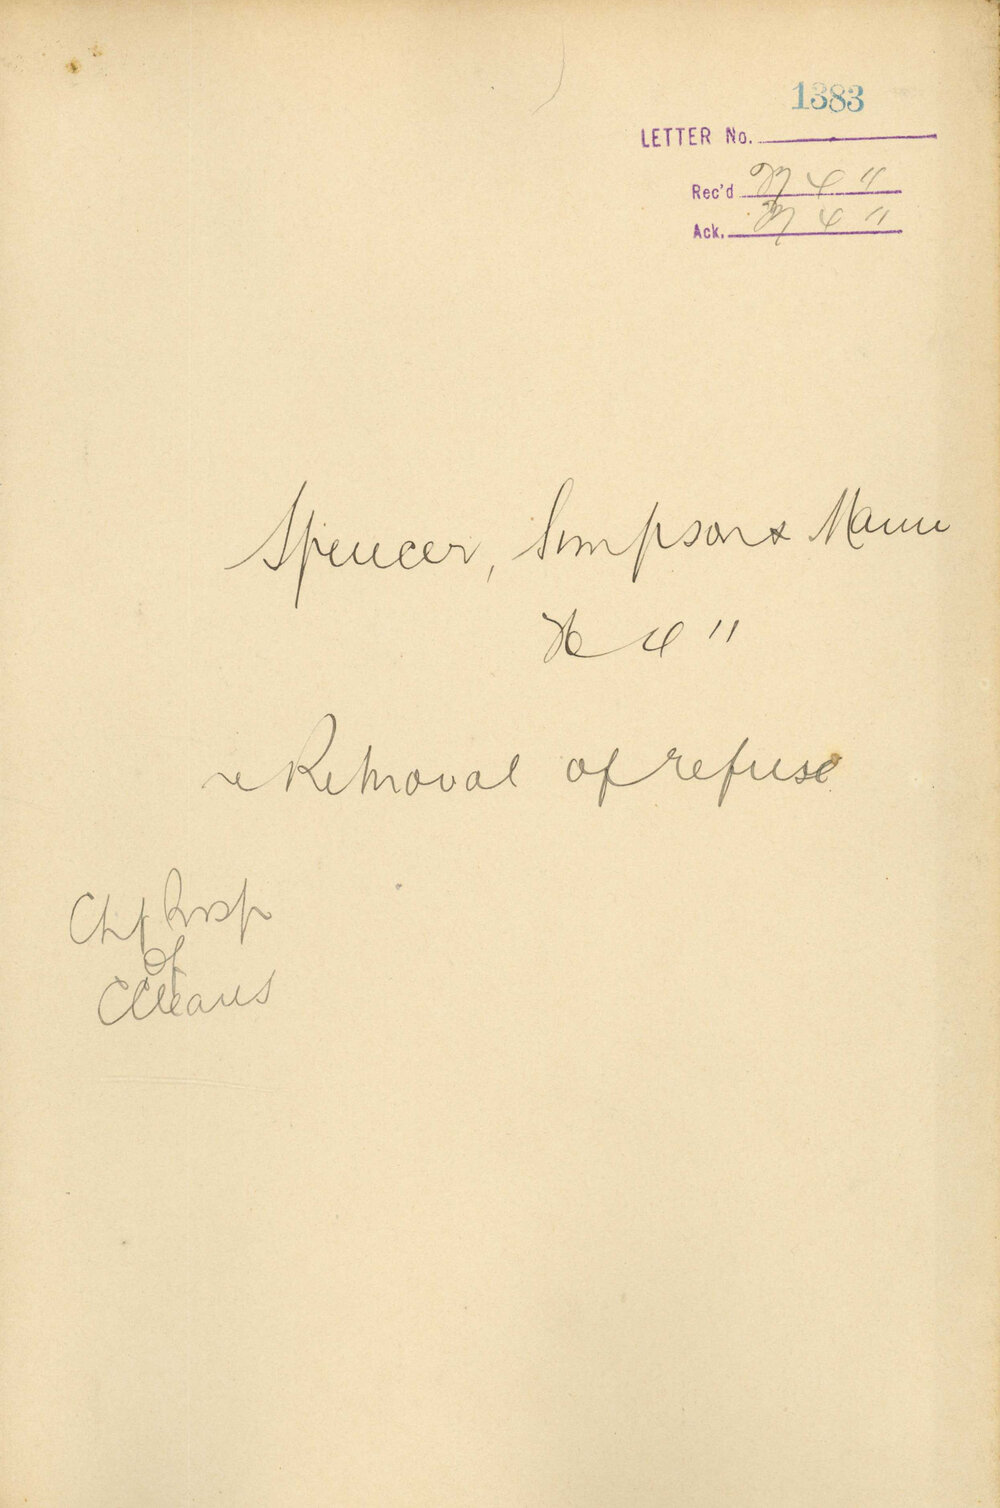 1383
LETTER No.
Rec'd 27 4 11
Ack. 27 4 11
Spencer, Simpson & Mann
26 4 11
re Removal of refuse
Chf Insp
of
CCleans